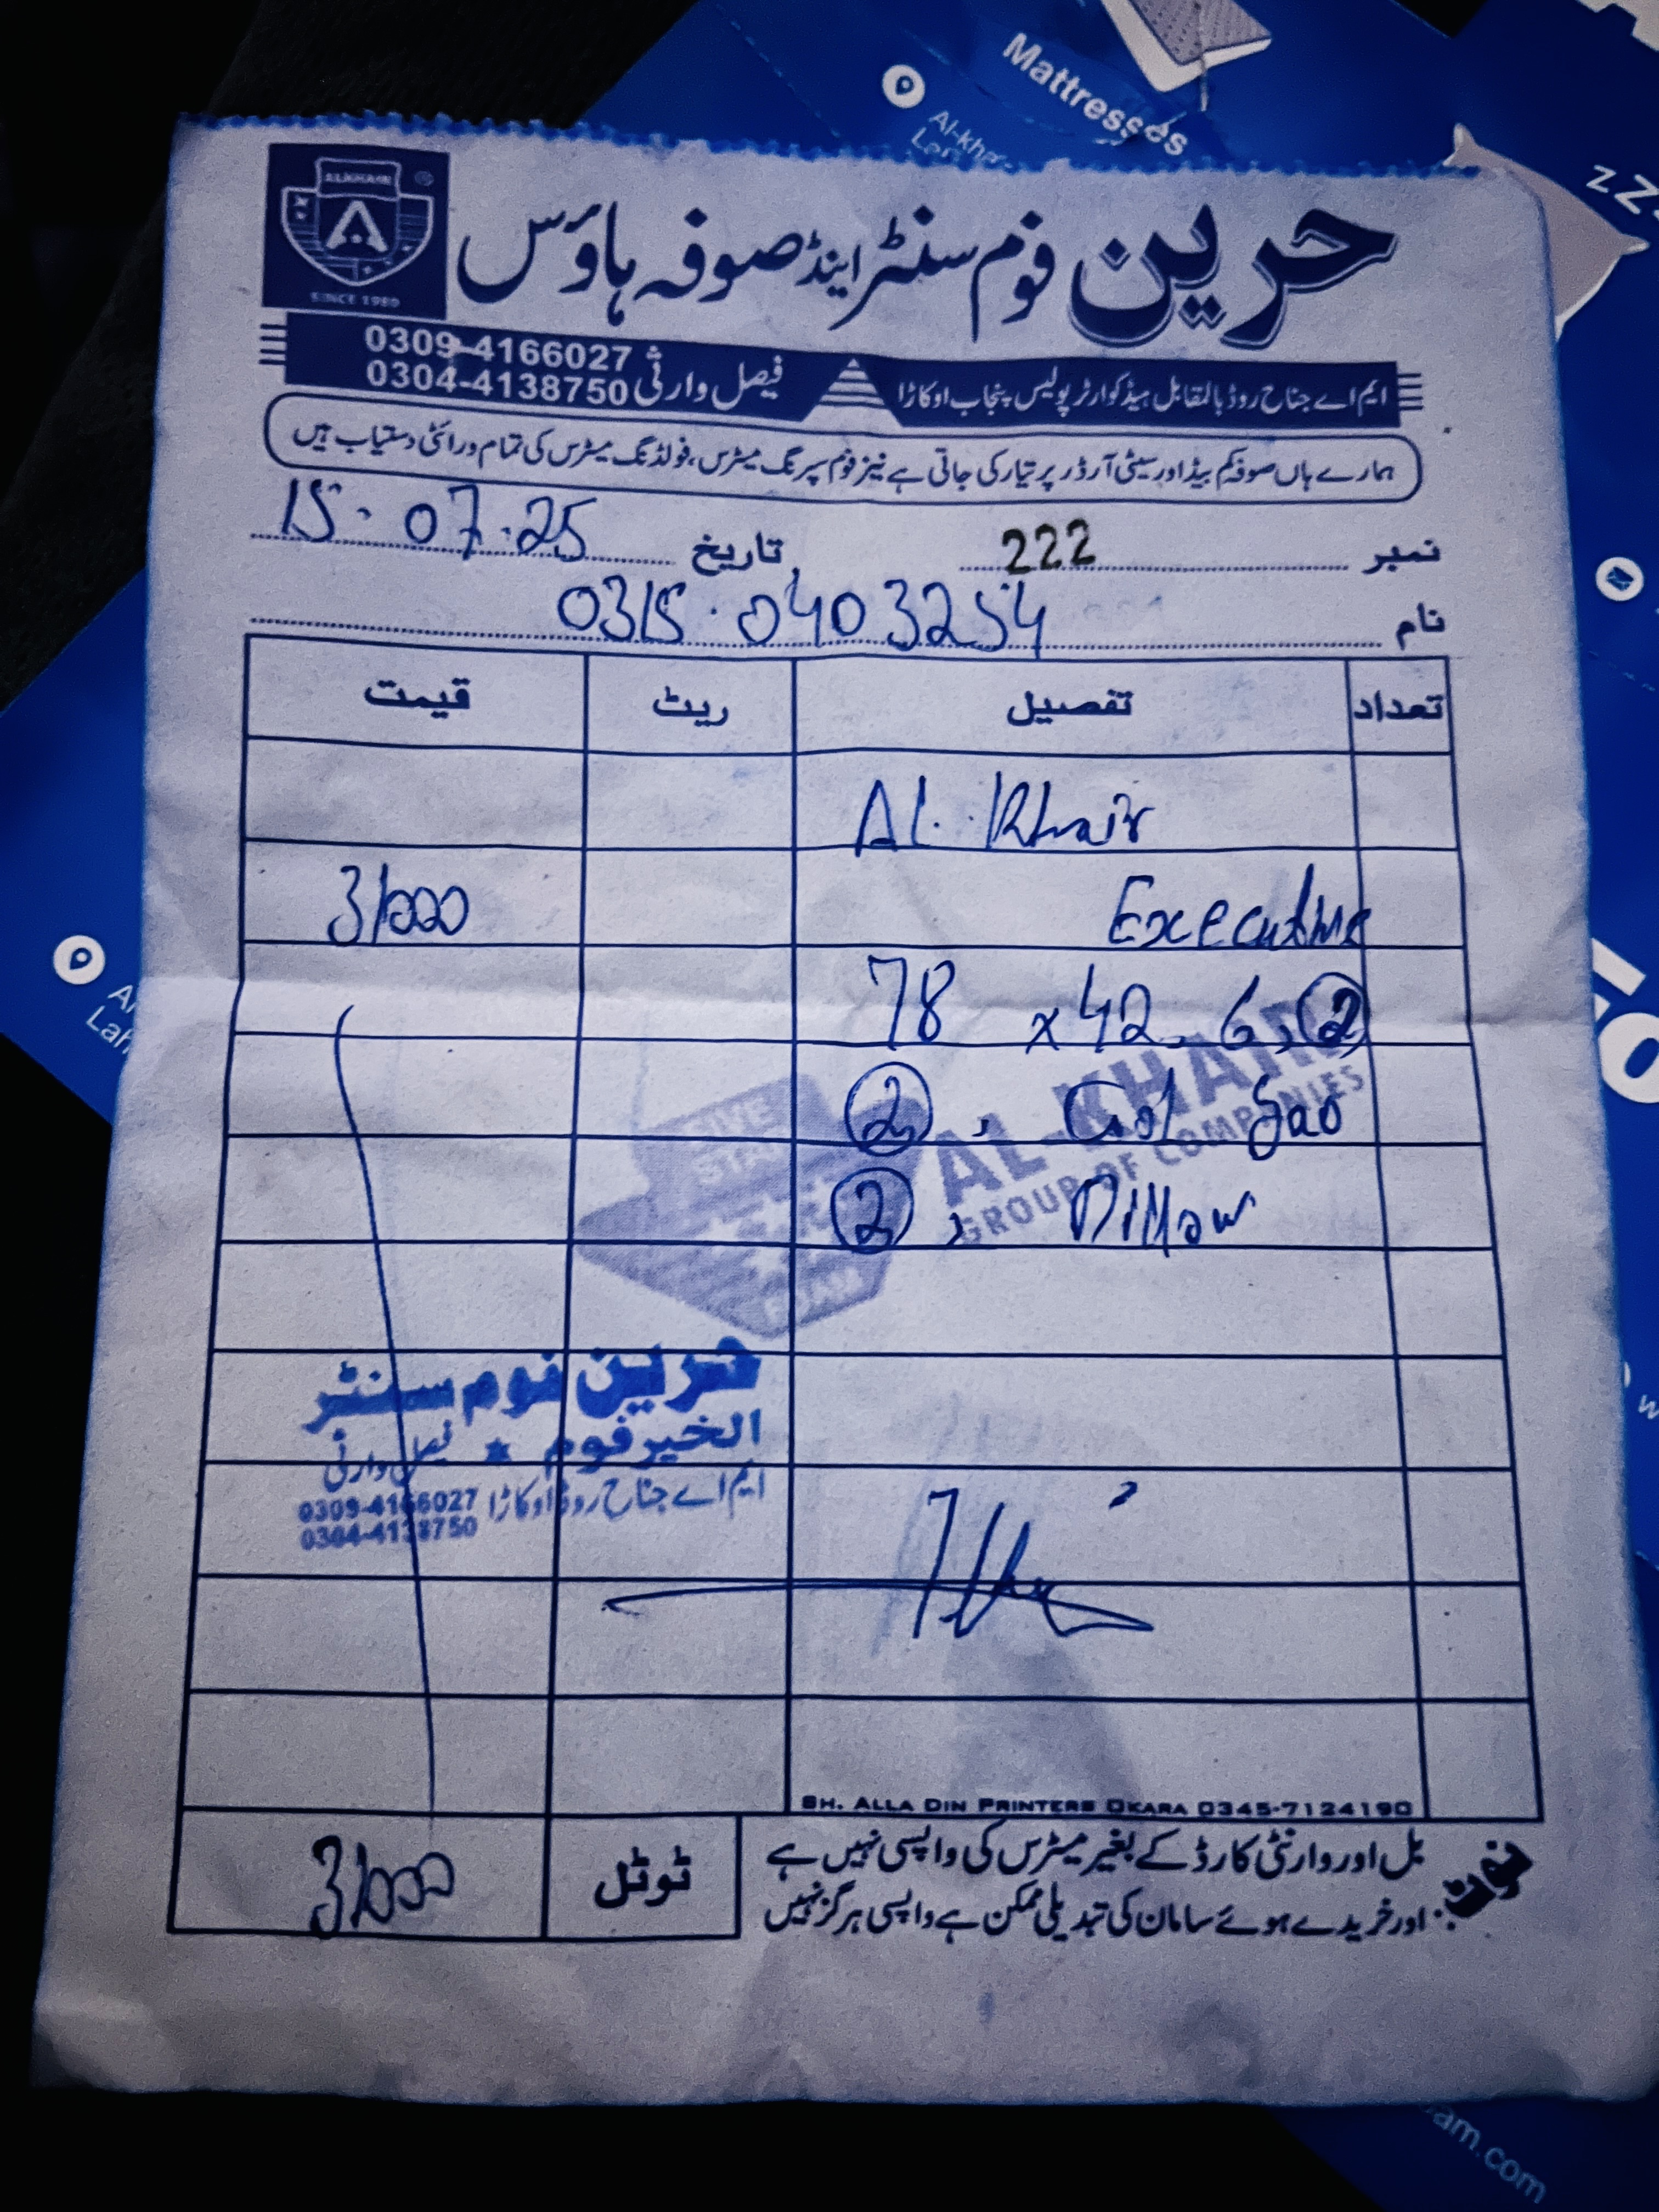 Mattresses
zZ
ALKHAIR
SINCE 1980
حرین فوم سنٹر اینڈ صوفہ ہاؤس
ایم اے جناح روڈ بالمقابل ہیڈ کوارٹر پولیس پنجاب اوکاڑا
فیصل وارثی
0309-4166027
0304-4138750
ہمارے ہاں صوفہ کم بیڈ اور سیٹی آرڈر پر تیار کی جاتی ہے نیز فوم سپرنگ میٹرس، فولڈنگ میٹرس کی تمام ورائٹی دستیاب ہیں
نمبر 222 تاریخ 15.07.25
نام 0315.0403254
تعداد تفصیل ریٹ قیمت
AL. Khair
Executive 31000
78 x 42. 6, 2
2, Gol Gao
2, Pillow
FIVE STAR FOAM
AL-KHAIR
GROUP OF COMPANIES
حرین فوم سنٹر
الخیر فوم ★ فیصل وارثی
ایم اے جناح روڈ اوکاڑا 0309-4166027
0304-4138750
SH. ALLA DIN PRINTERS OKARA 0345-7124190
نوٹ: بل اور وارنٹی کارڈ کے بغیر میٹرس کی واپسی نہیں ہے
اور خریدے ہوئے سامان کی تبدیلی ممکن ہے واپسی ہرگز نہیں
ٹوٹل 31000
am.com